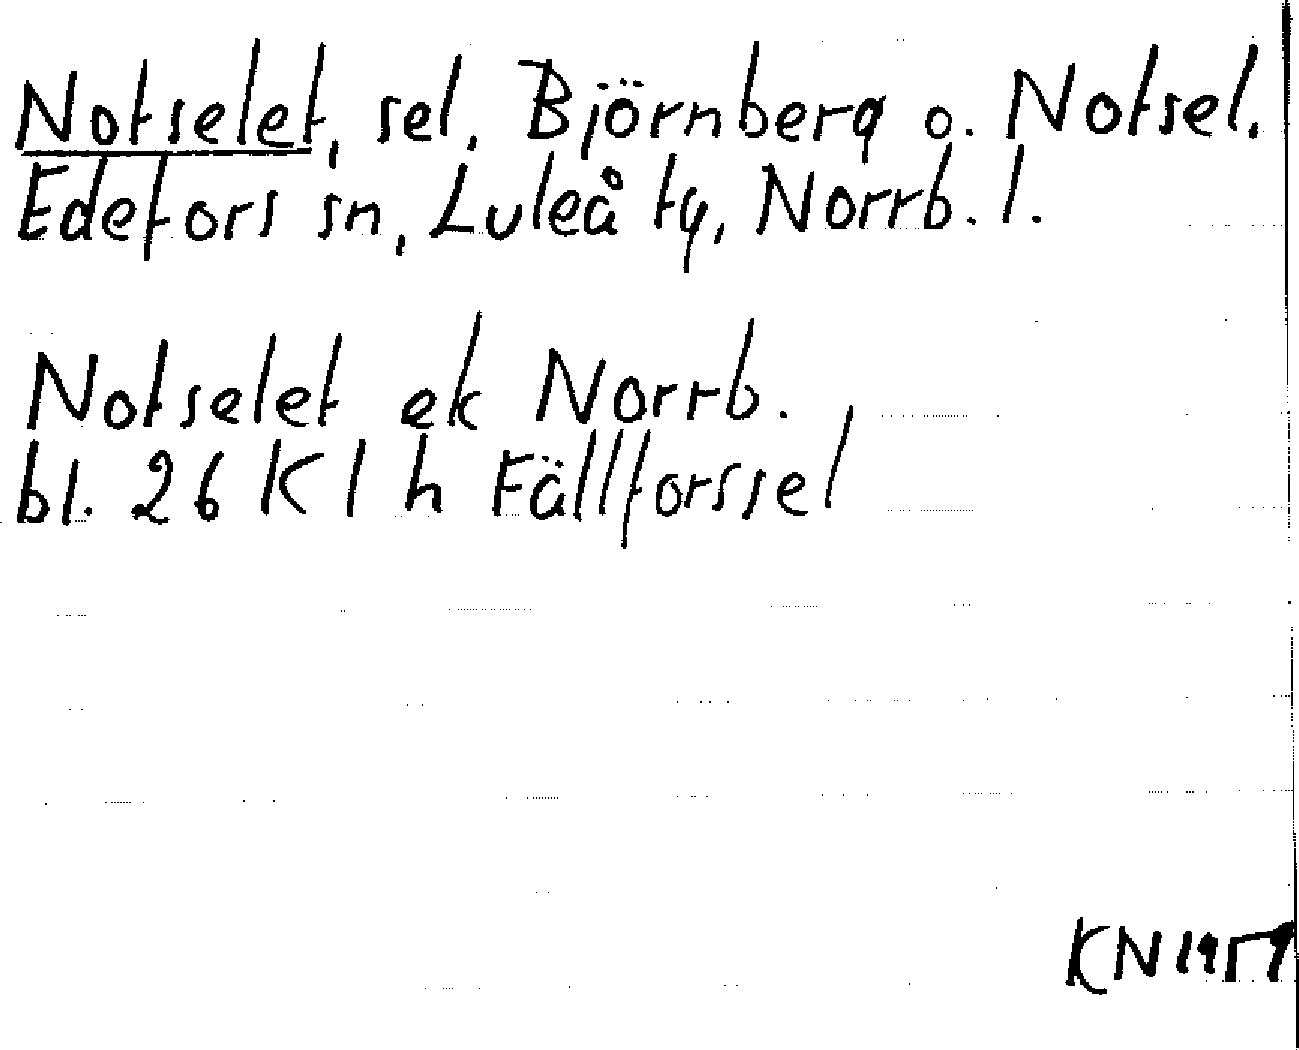 Notselet, sel, Björnberg o. Notsel.
Edefors sn, Luleå ty, Norrb. l.
Notselet ek Norrb.
bl. 26 K l h Fällforssel
KN 1959